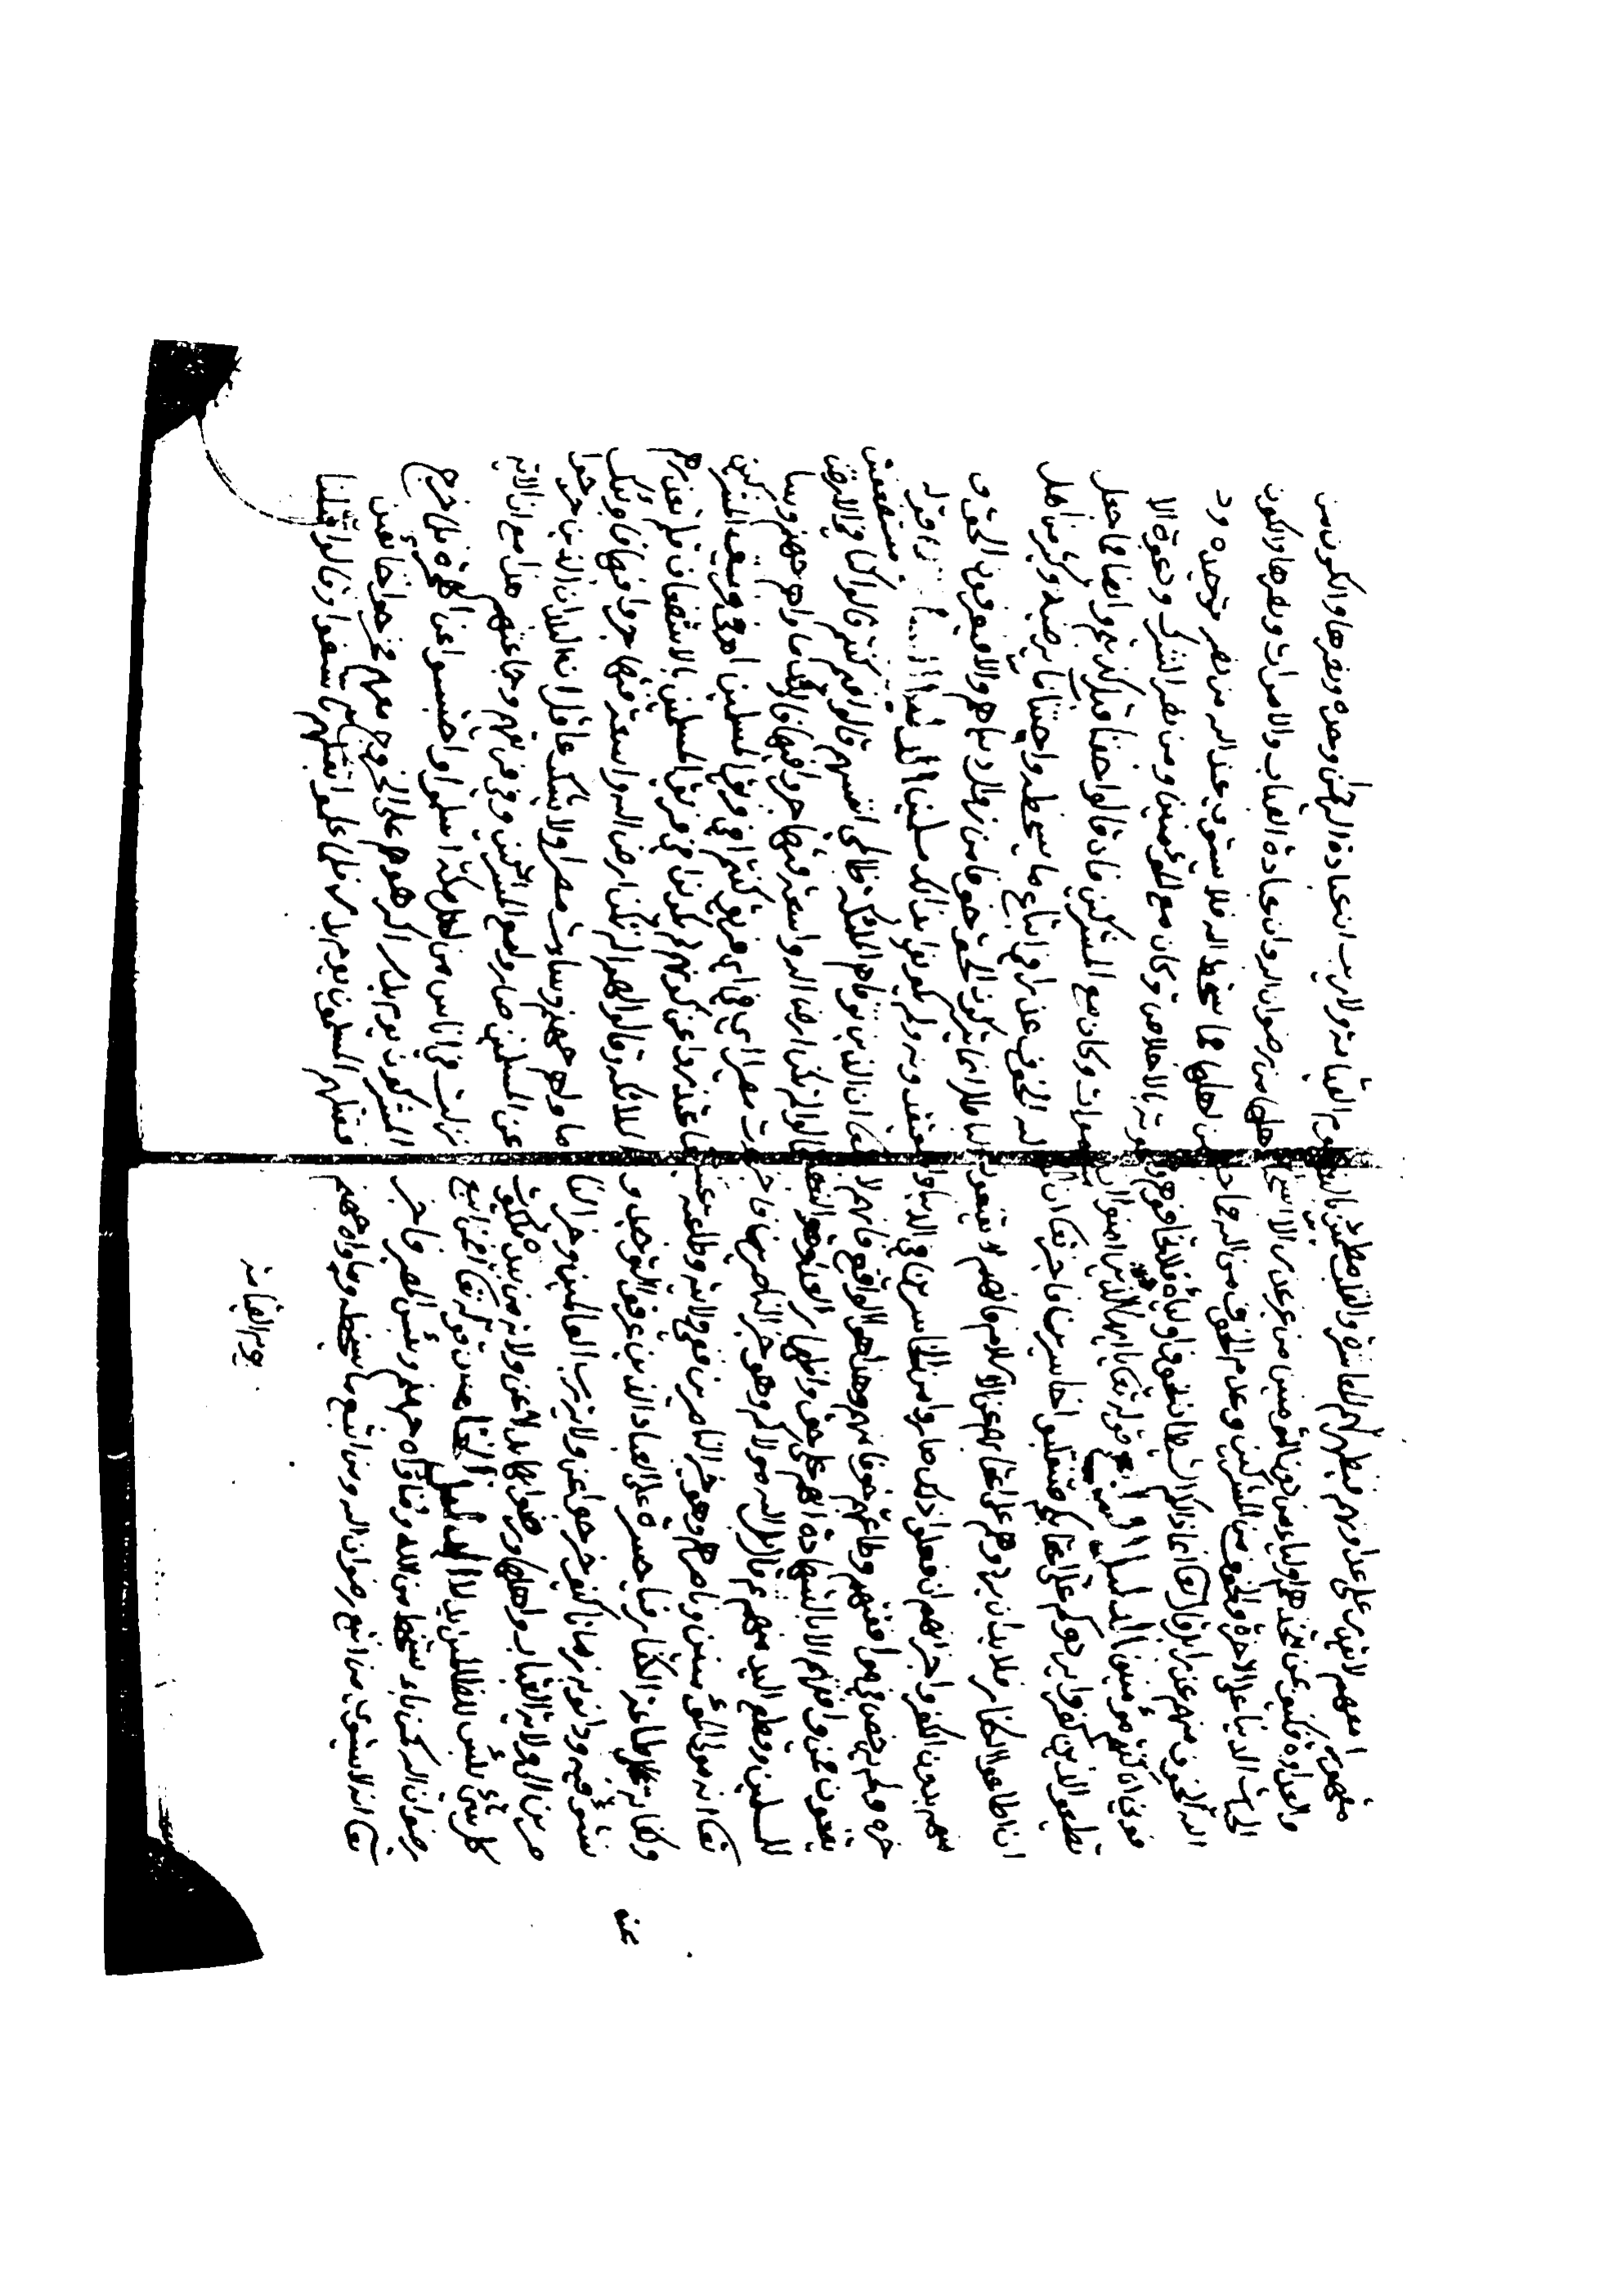 مقهورا معهم لا يقدر على عداوتهم فيظهر لهم المعاشرة والقلب مطمئن بالبغضاء
والعداوة فكيف بمن اتخذهم اولياء من دون المؤمنين من غير عذر الا استحباب
الحيات الدنيا على الاخرة والخوف من المشركين وعدم الخوف من الله فما جعل
الله الخوف منهم عذرا بل قال تعالى انما ذلكم الشيطان يخوف اولياءه فلا تخافوهم وخا
فوني ان كنتم مؤمنين الدليل قوله تعالى يا ايها الذين امنوا ان
تطيعوا الذين كفروا يردوكم على اعقابكم فتنقلبوا خاسرين فاخبر تعالى ان
ان اطاعوا الكفار فلا بد ان يردوهم على اعقابهم عن الاسلام فانهم لا يقنعون
منهم بدون الكفر واخبر انهم ان فعلوا ذلك صاروا من الخاسرين في الدنيا والا
خرة ولم يرخص في موافقتهم وطاعتهم خوفا منهم وهذا هو الواقع فانهم لا
يقنعون ممن وافقهم الا بالشهادة انهم على حق واظهار العداوة والبغضاء
للمسلمين وقطع اليد منهم ثم قال بل الله مولاكم وهو خير الناصرين فاخبر
تعالى انه مولى المؤمنين وناصرهم وهو خير الناصرين ففي ولايته وطاعته غنية
وكفاية عن طاعة الكفار فيا حسرة على العباد الذين عرفوا التوحيد و
نشئوا فيه ودانوا به زمانا كيف خرجوا عن ولاية رب العالمين وخير النا
صرين الى ولاية القباب واهلها ورضوا بها بدلا عن ولاية من بيده ملكوت
كل شيء بئس للظالمين بدلا الدليل قوله تعالى افمن اتبع
رضوان الله كمن باء بسخط من الله ومأواه جهنم وبئس المصير فاخبر
تعالى انه لا يستوي من اتبع رضوان الله ومن اتبع ما يسخطه ومأواه جهنم
يوم القيامة
يوم القيامة ولا ريب ان عبادة الرحمن وحده ونصرها والكون من
اهلها من رضوان الله وان عبادة القباب والاموات ونصرها والكون
من اهلها مما يسخط الله فلا يستوي عند الله من نصر توحيده ود
عوته بالاخلاص وكان مع المؤمنين ومن نصر الشرك ودعوة الا
موات وكان مع المشركين فان قالوا خفنا قيل لهم كذبتم وايضا فما جعل
الله الخوف عذرا في اتباع ما يسخطه واجتناب ما يرضيه وكثير من اهل
الباطل انما يتركون الحق خوفا من زوال دنياهم والا فيعرفون الحق و
يعتقدونه ولم يكونوا بذلك مسلمين الدليل قوله
تعالى ان الذين توفاهم الملائكة ظالمي انفسهم قالوا فيم كنتم قالوا كنا مستضعفين في الارض
قالوا الم تكن ارض الله واسعة فتهاجروا فيها فاولئك مأواهم جهنم وسا
ءت مصيرا اي في اي فريق كنتم افي فريق المسلمين ام في فريق المشركين
فاعتذروا عن كونهم لم يكونوا في فريق المسلمين بالاستضعاف فلم تعذرهم
الملائكة وقالوا لهم الم تكن ارض الله واسعة فتهاجروا فيها فاولئك
مأواهم جهنم وساءت مصيرا ولا يشك عاقل ان البلدان الذين خرجوا
عن المسلمين صاروا مع المشركين وفي فريقهم وجماعتهم هذا مع ان الاية
نزلت في اناس من اهل مكة اسلموا واحتبسوا عن الهجرة فلما خرج
المشركون يوم بدر اكرهوهم على الخروج معهم فخرجوا خائفين
فقتلهم المسلمون يوم بدر فلما علموا بقتلهم تأسفوا وقالوا قتلنا